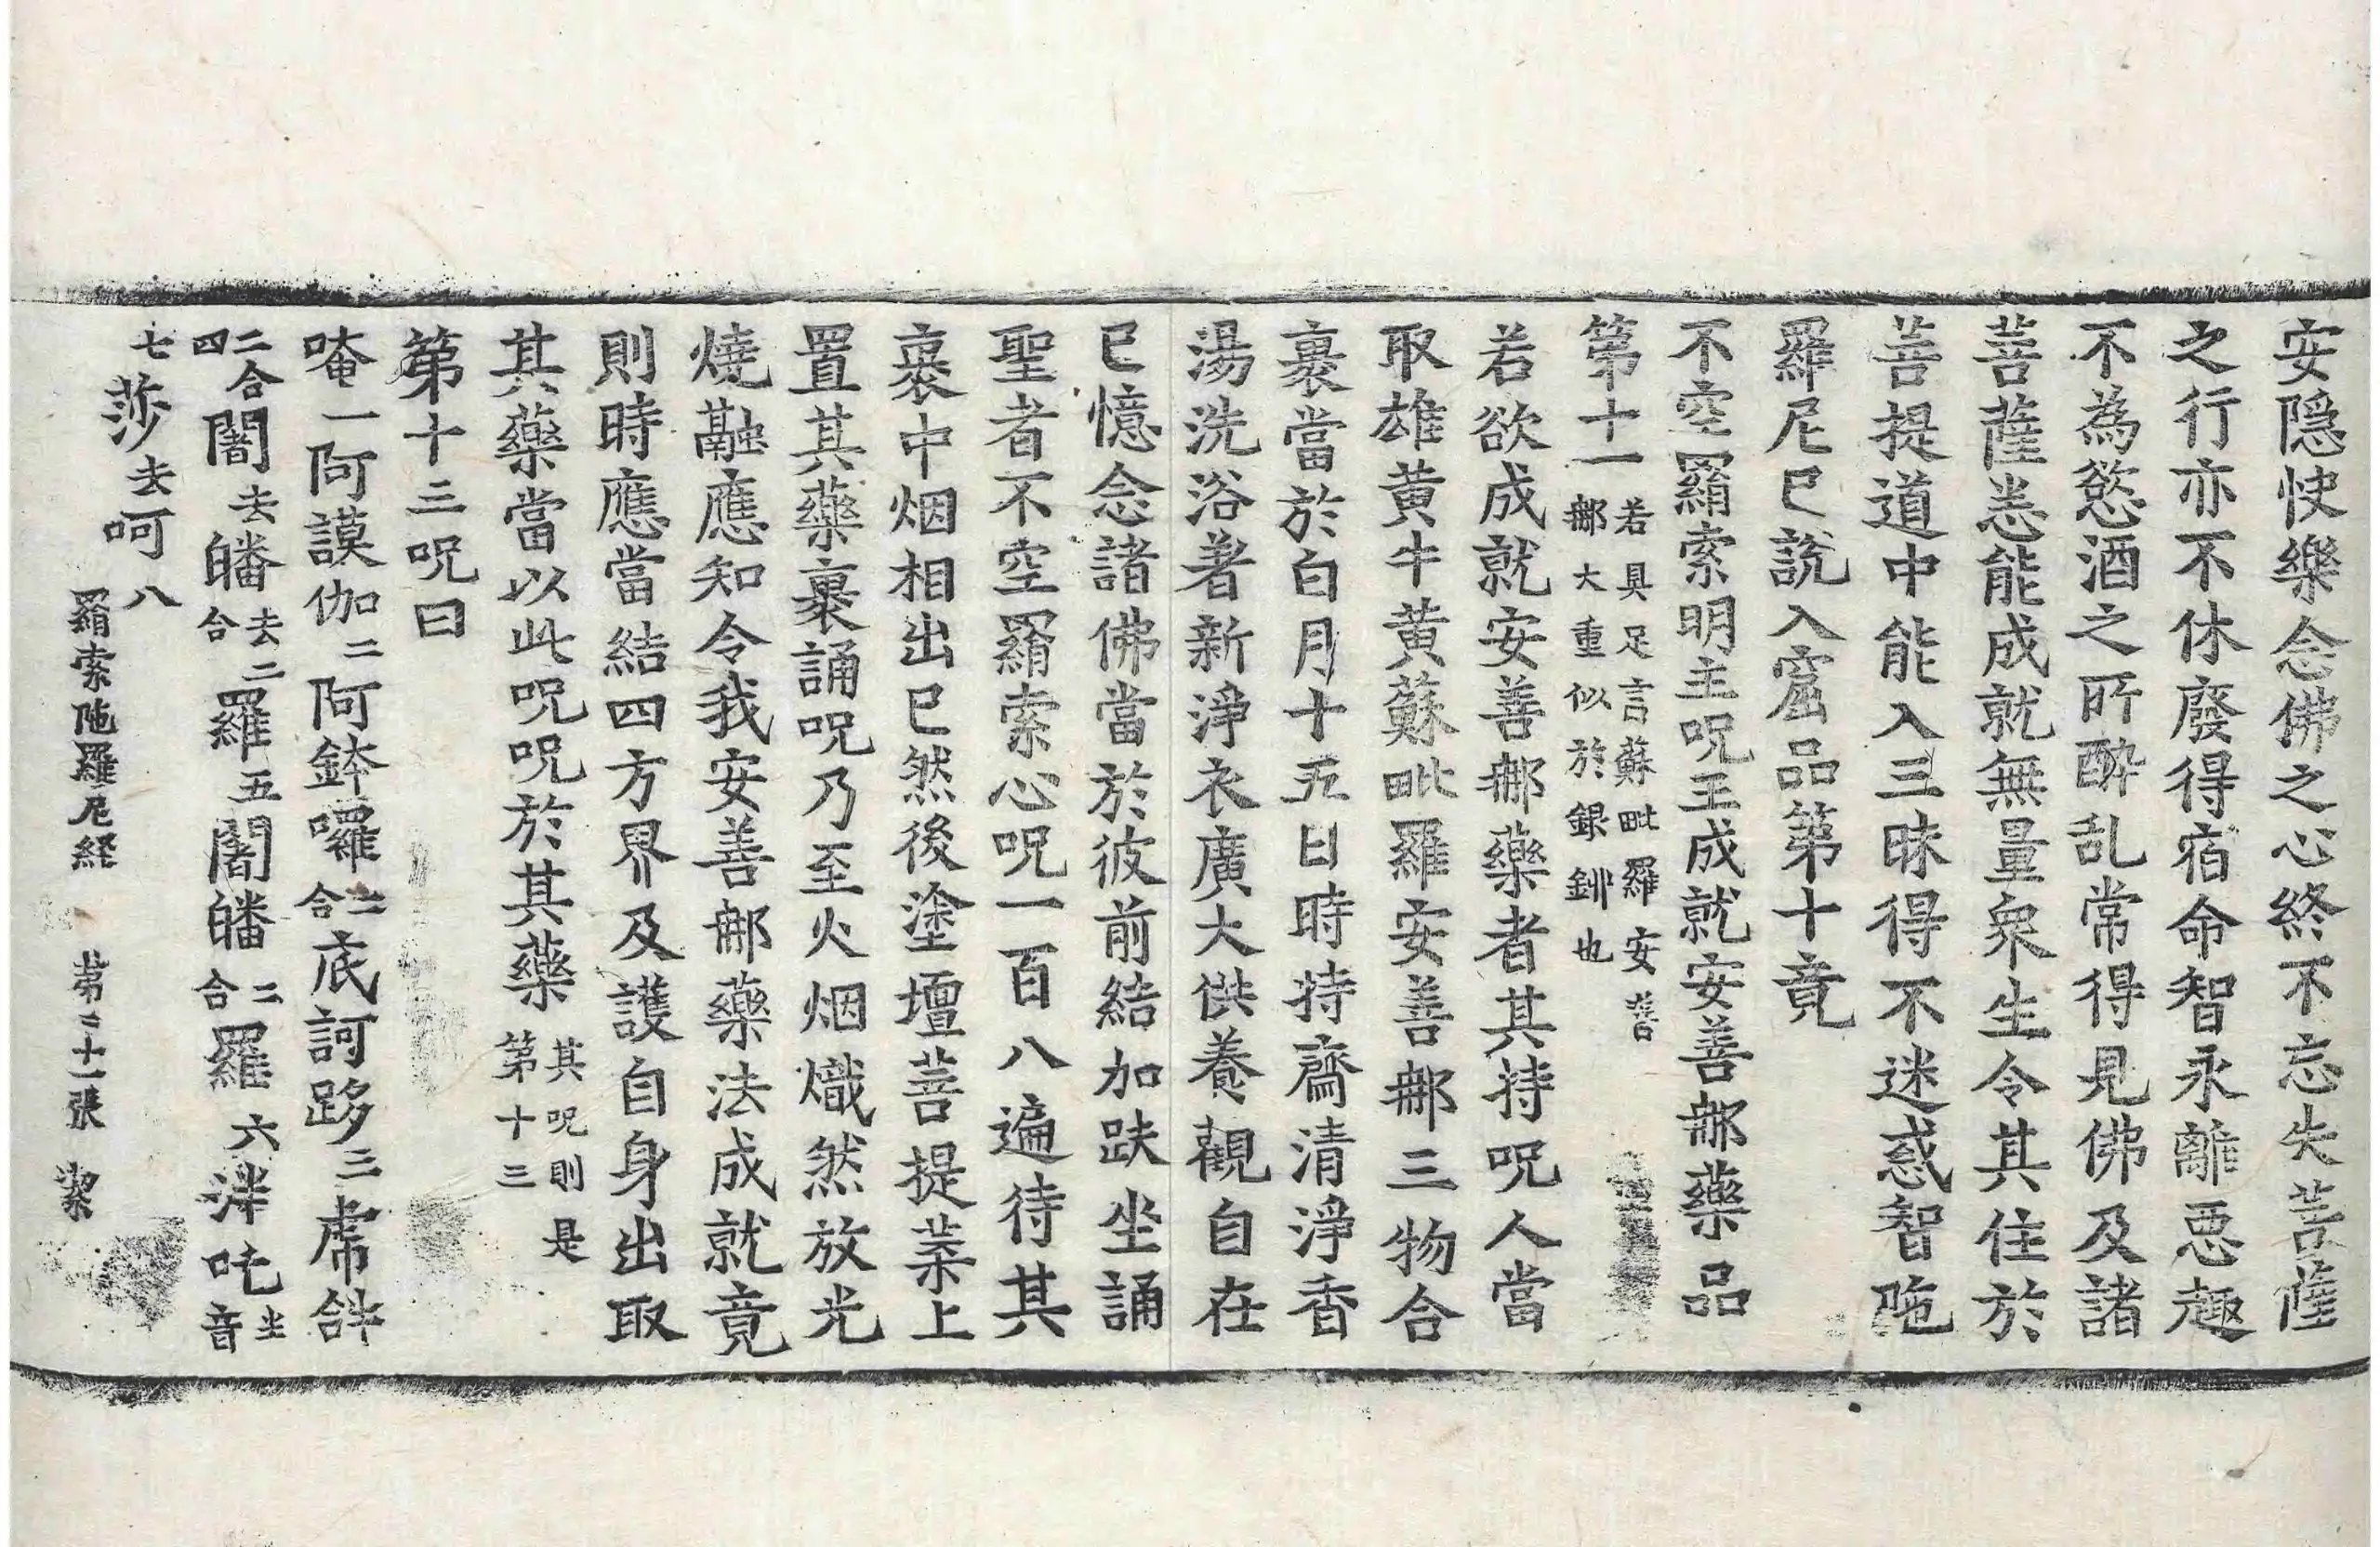 安隱快樂念佛之心終不忘失菩薩
之行亦不休廢得宿命智永離惡趣
不為慾酒之所醉乱常得見佛及諸
菩薩恙能成就無量眾生令其住於
菩提道中能入三昧得不迷惑智陁
羅尼已說入窟品第十竟
不空羂索明主呪王成就安善那藥品
第十一若具足言蘇毗羅安善那大重似於銀鉚也
若欲成就安善那藥者其持呪人當
取雄黃牛黃蘇毗羅安善那三物合
裹當於白月十五日時持齋清淨香
湯洗浴著新淨衣廣大供養觀自在
已憶念諸佛當於彼前結加趺坐誦
聖者不空羂索心呪一百八遍待其
裹中烟相出已然後塗壇菩提葉上
置其藥裹誦呪乃至火烟熾然放光
燒融應知令我安善那藥法成就竟
則時應當結四方界及護自身出取
其藥當以此呪呪於其藥其呪則是第十三
第十三呪曰
唵一阿謨伽二阿鉢囉二合底訶哆三虎𤙖
二合四闍去皤去二合羅五闍皤二合羅六泮吒半音
七莎去呵八
羂索陁羅尼経 第二十一張 潔